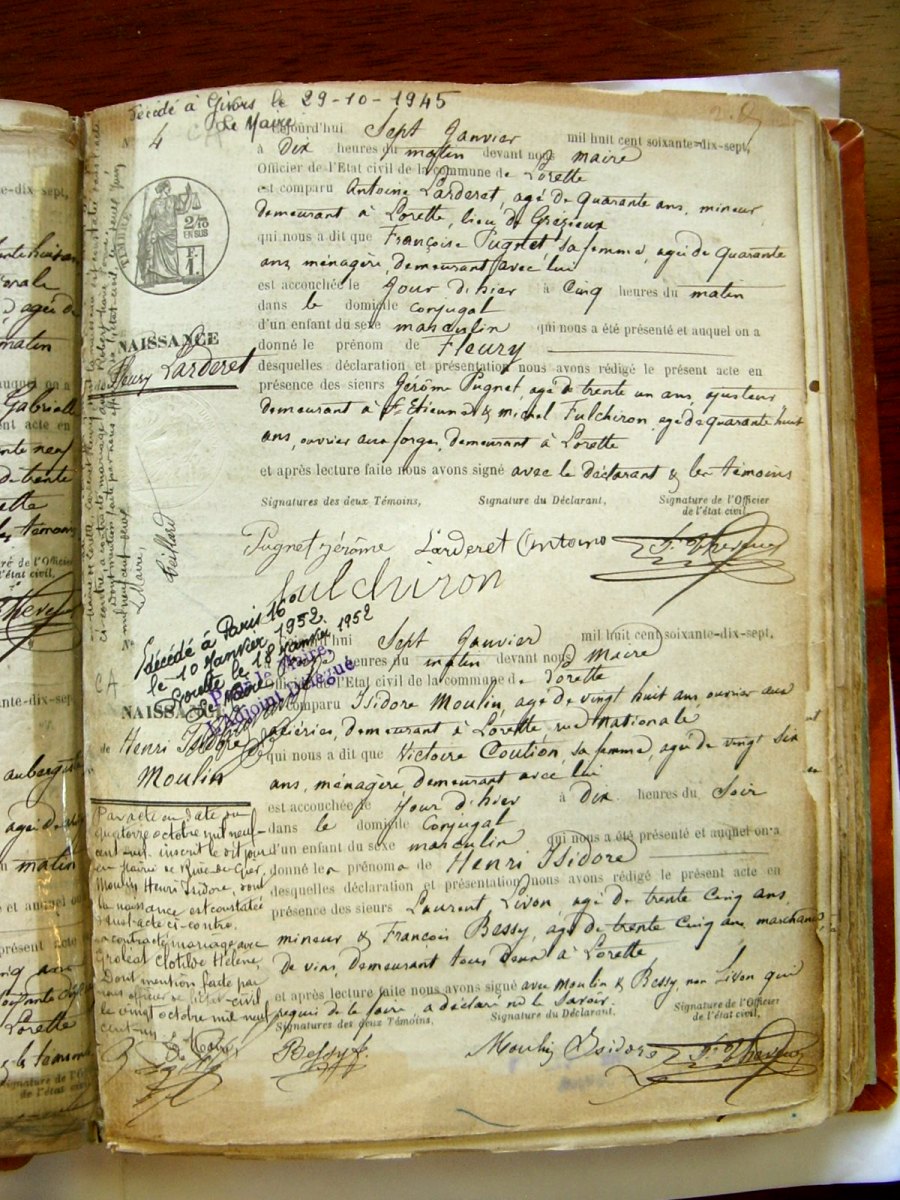 Décédé à Givors le 29-10-1945
Le Maire
N° 4
Aujourd'hui Sept Janvier mil huit cent soixante-dix-sept,
à Dix heures du matin devant nous maire
Officier de l'Etat civil de la commune de Lorette
est comparu Antoine Larderet, agé de quarante ans, mineur
demeurant à Lorette, lieu de Grézieux
qui nous a dit que Françoise Pugnet, sa femme, agée de quarante
ans, ménagère, demeurant avec lui
est accouchée le Jour d'hier à Cinq heures du matin
dans le domicile conjugal
d'un enfant du sexe masculin qui nous a été présenté et auquel on a
donné le prénom de Fleury
desquelles déclaration et présentation nous avons rédigé le présent acte en
présence des sieurs Jérôme Pugnet, agé de trente un ans, ajusteur
demeurant à St Etienne & michel Fulchiron, agé de quarante huit
ans, ouvrier aux forges, demeurant à Lorette
et après lecture faite nous avons signé avec le déclarant & les témoins
Signatures des deux Témoins, Signature du Déclarant, Signature de l'Officier
de l'état civil,
Pugnet Jérôme Larderet Antoine
fulchiron
2/10
EN SUS
F.
1.
NAISSANCE
Fleury Larderet
Le Maire,
N°
Décédé à Paris 16e
le 10 Janvier 1952.
Lorette le 18 Janvier 1952
Le Maire
Pour le Maire,
L'Adjoint Délégué
CA
NAISSANCE
de
Henri Isidore
Moulin
Aujourd'hui Sept Janvier mil huit cent soixante-dix-sept,
heures du matin devant nous Maire
Officier de l'Etat civil de la commune de Lorette
est comparu Isidore Moulin, agé de vingt huit ans, ouvrier aux
aciéries, demeurant à Lorette, rue nationale
qui nous a dit que Victoire Coution, sa femme, agée de vingt six
ans, ménagère, demeurant avec lui
est accouchée le Jour d'hier à Dix heures du Soir
dans le domicile conjugal
d'un enfant du sexe masculin qui nous a été présenté et auquel on a
donné les prénoms de Henri Isidore
desquelles déclaration et présentation nous avons rédigé le présent acte en
présence des sieurs Laurent Livon, agé de trente cinq ans,
mineur & François Bessy, agé de trente cinq ans, marchand
de vins, demeurant tous deux à Lorette
et après lecture faite nous avons signé avec Moulin & Bessy, non Livon qui
requis de le faire a déclaré ne le savoir.
Signatures des deux Témoins, Signature du Déclarant, Signature de l'Officier
de l'état civil,
Bessy f. Moulin Isidore
Par acte en date du
quatorze octobre mil neuf
cent un inscrit le dit jour
en mairie de Rive-de-Gier,
Moulin Henri Isidore, dont
la naissance est constatée
dans l'acte ci-contre,
a contracté mariage avec
Groleat Clotilde Hélène,
Dont mention faite par
nous officier de l'état-civil
le vingt octobre mil neuf
cent-un
Le Maire